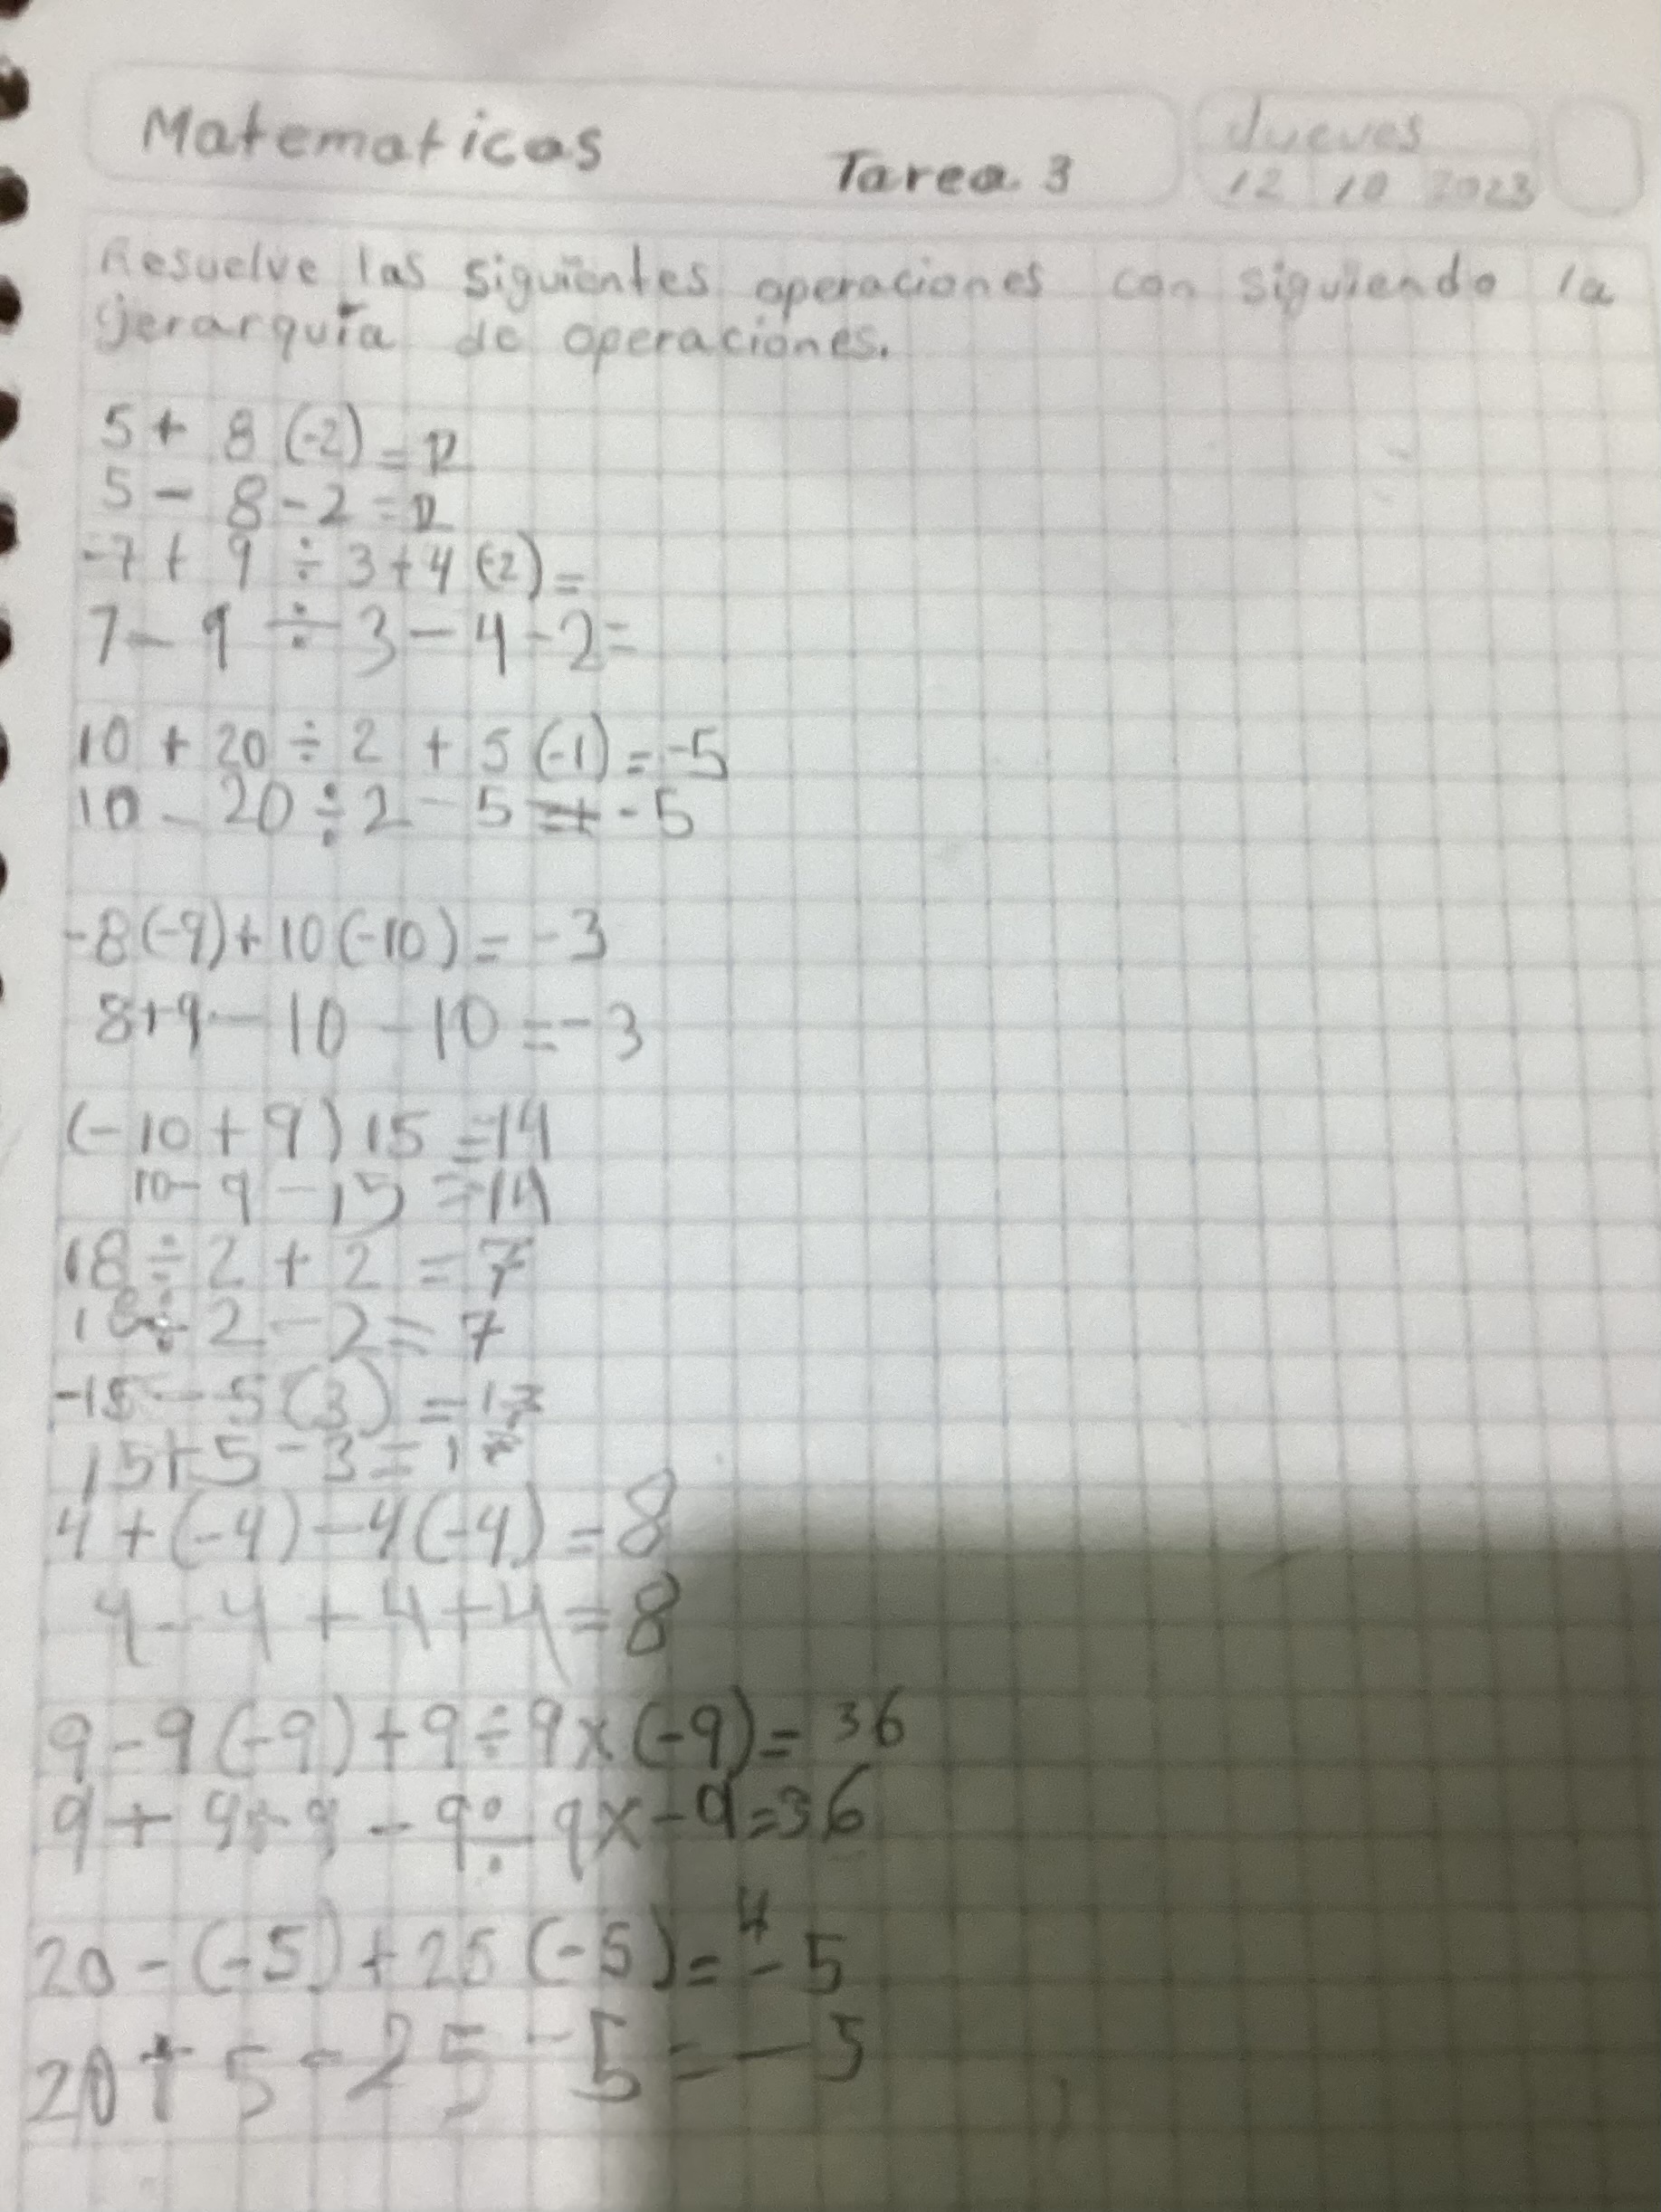 Matematicas Tarea 3
Jueves
12 10 2023
Resuelve las siguientes operaciones con siguiendo la
jerarquía de operaciones.
5 + 8 (-2) = 12
5 - 8 - 2 = 12
-7 + 9 ÷ 3 + 4 (-2) =
7 - 9 ÷ 3 - 4 - 2 =
10 + 20 ÷ 2 + 5 (-1) = -5
10 - 20 ÷ 2 - 5 = -5
-8 (-9) + 10 (-10) = -3
8 + 9 - 10 - 10 = -3
(-10 + 9) 15 = 14
10 - 9 - 15 = 14
18 ÷ 2 + 2 = 7
18 ÷ 2 - 2 = 7
-15 - 5 (3) = 17
15 + 5 - 3 = 17
4 + (-4) - 4 (-4) = 8
4 - 4 + 4 + 4 = 8
9 - 9 (-9) + 9 ÷ 9 x (-9) = 36
9 + 9 + 9 - 9 ÷ 9 x - 9 = 36
20 - (-5) + 25 (-5) = -5
20 + 5 - 25 - 5 = -5